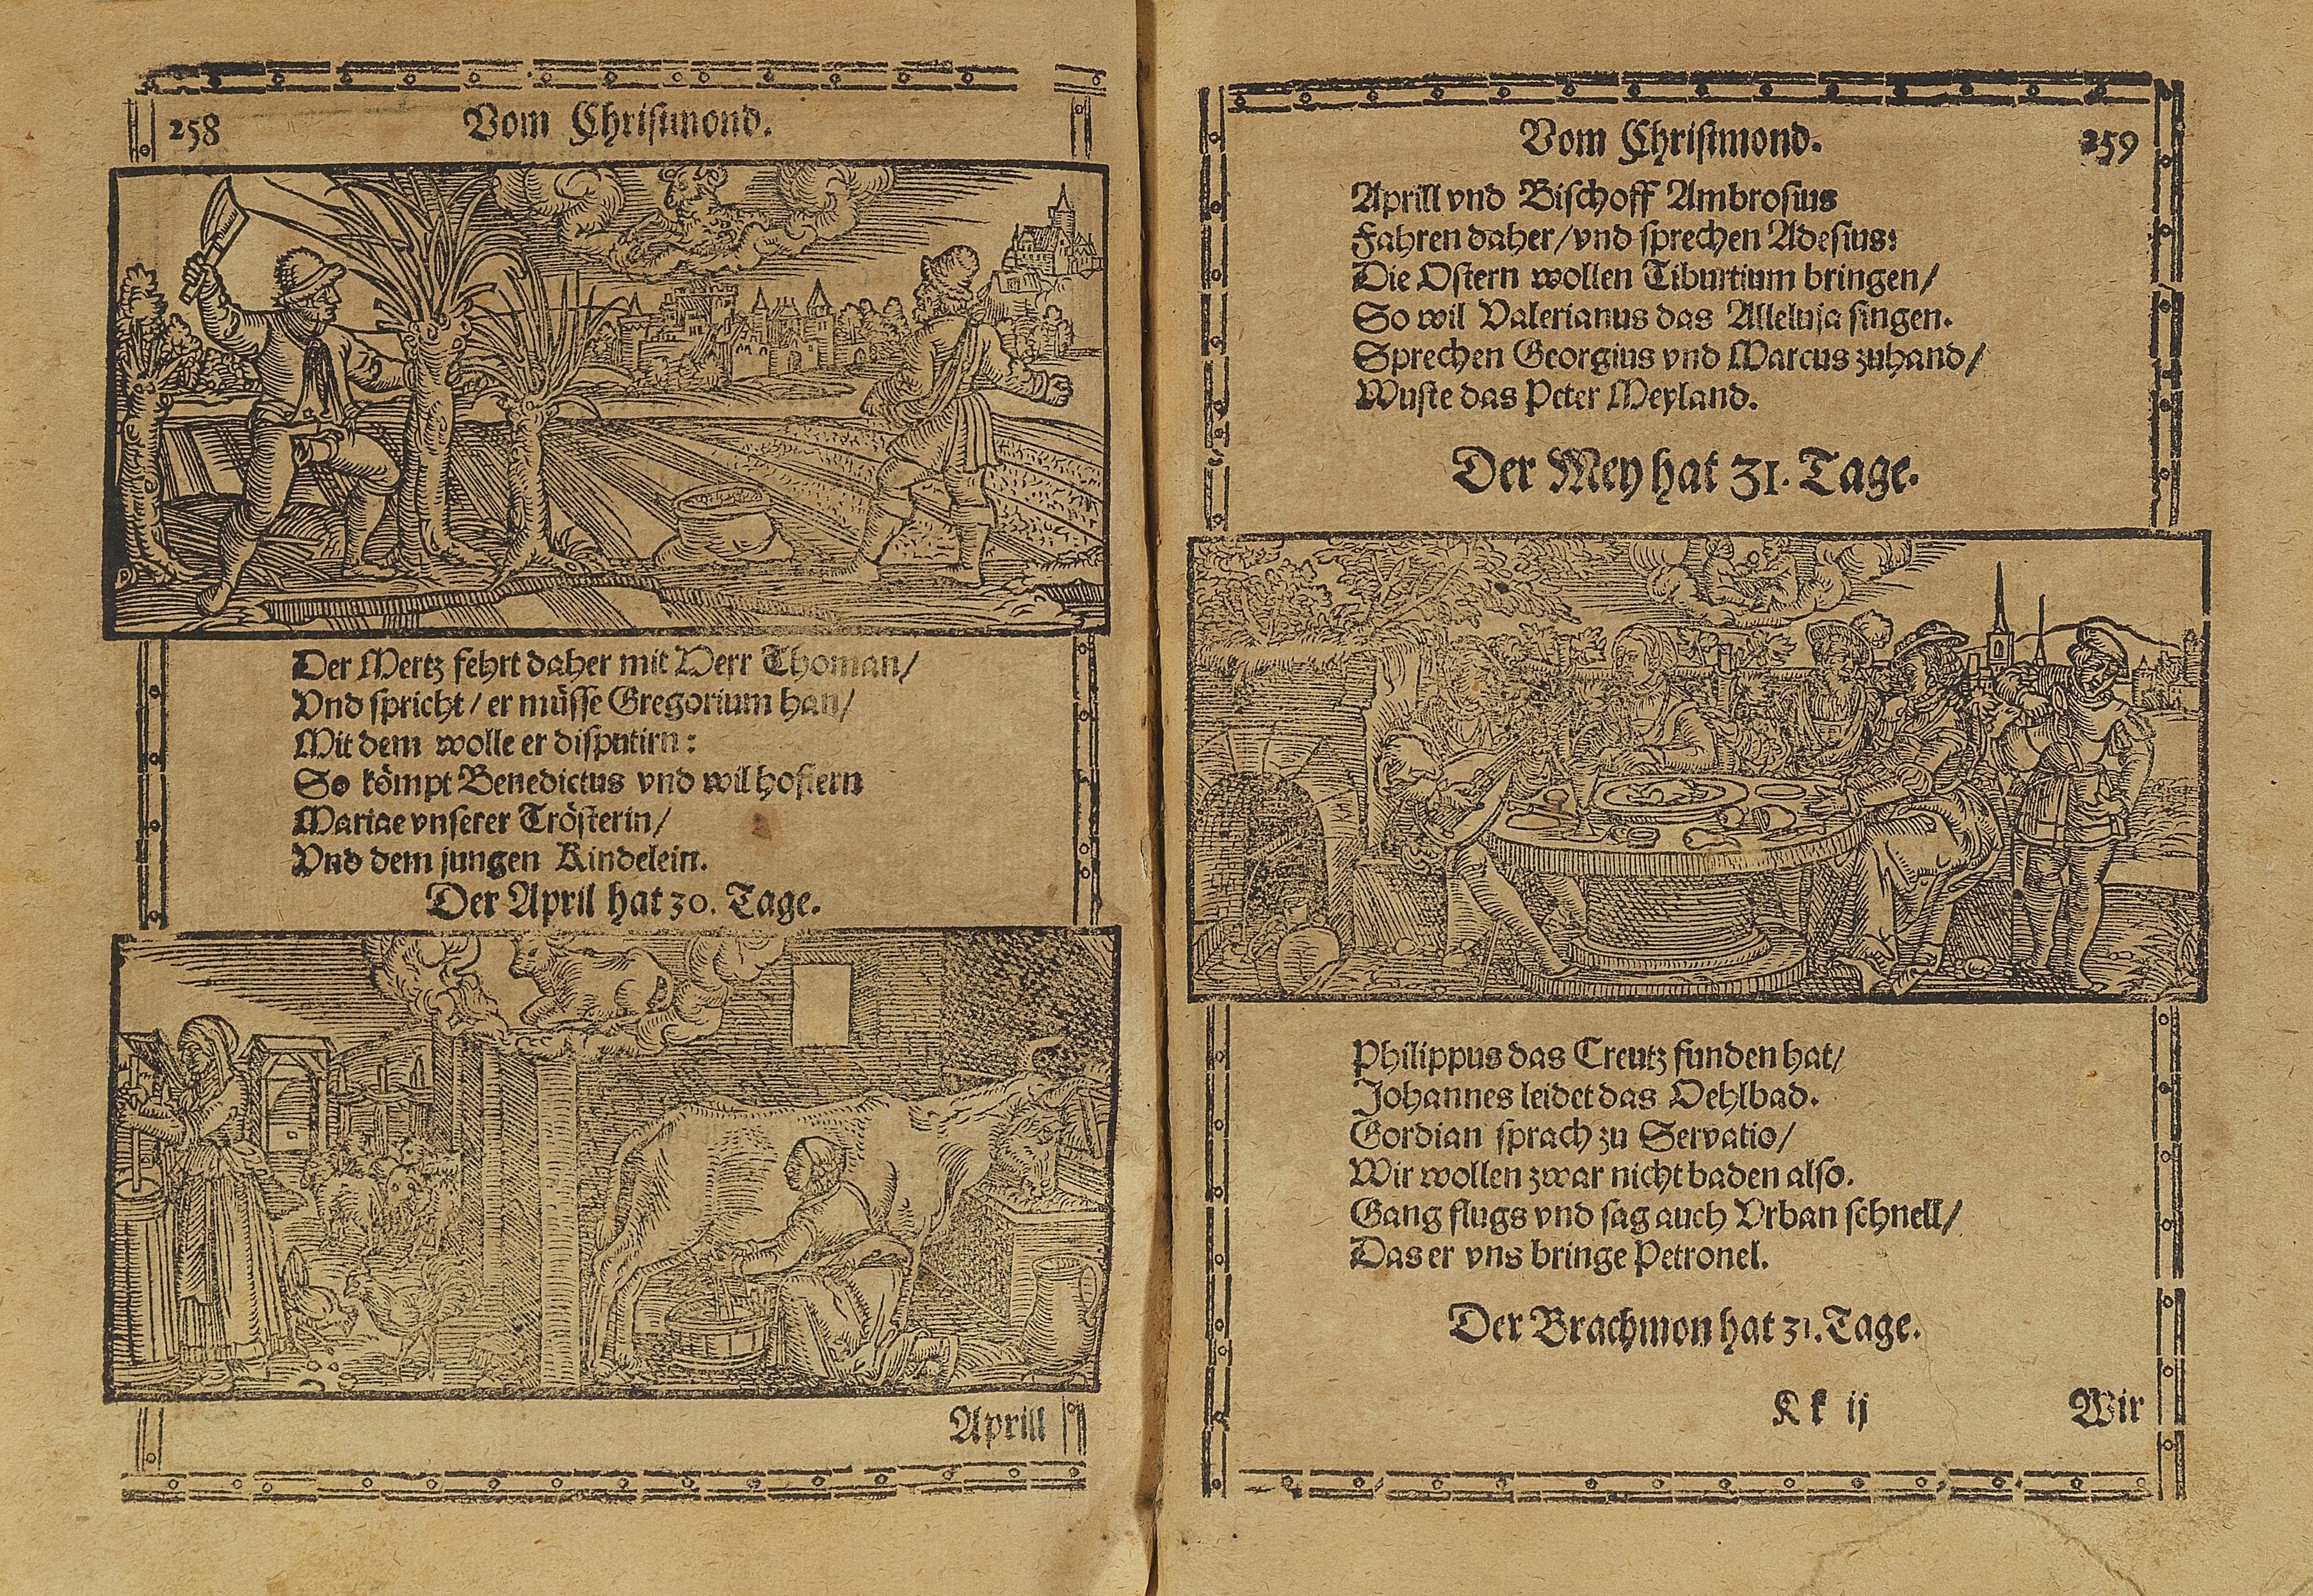 258
Vom Christmond.
Der Mertz fehrt daher mit Herr Thoman/
Vnd spricht/ er müsse Gregorium han/
Mit dem wolle er disputirn:
So kömpt Benedictus vnd wil hofiern
Mariae vnserer Trösterin/
Vnd dem jungen Kindelein.
Der April hat 30. Tage.
Aprill
Vom Christmond.
259
Aprill vnd Bischoff Ambrosius
Fahren daher/vnd sprechen Adesius:
Die Ostern wollen Tiburtium bringen/
So wil Valerianus das Alleluja singen.
Sprechen Georgius vnd Marcus zuhand/
Wuste das Peter Meyland.
Der Mey hat 31. Tage.
Philippus das Creutz funden hat/
Johannes leidet das Oehlbad.
Gordian sprach zu Servatio/
Wir wollen zwar nicht baden also.
Gang flugs vnd sag auch Vrban schnell/
Das er vns bringe Petronel.
Der Brachmon hat 31. Tage.
K k ij
Wir